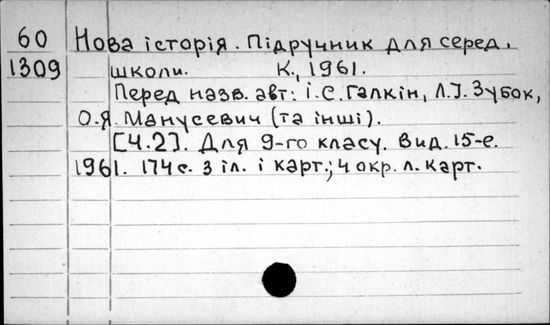 60 Нова історія. Підручник для серед.
1309 школи. К., 1961.
Перед назв. авт: І.С. Галкін, Л.І. Зубок,
О.Я. Манусевич (та інші).
[Ч.2]. Для 9-го класу. Вид. 15-е.
1961. 174 с. з іл. і карт.; 4 окр. л. карт.